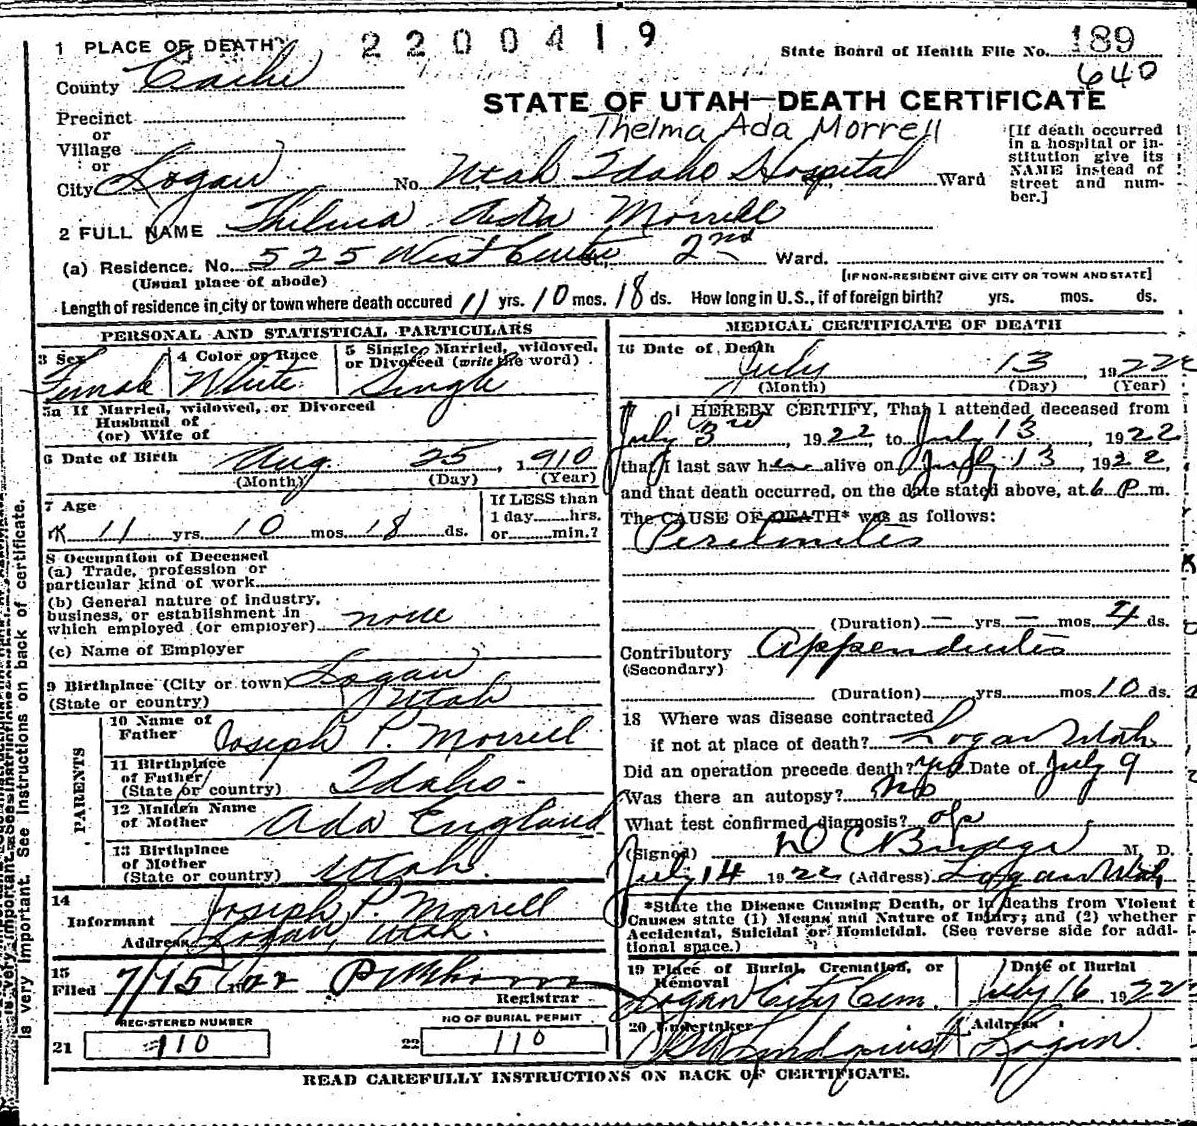 1 PLACE OF DEATH
2200419
State Board of Health File No. 189
640
County Cache
STATE OF UTAH—DEATH CERTIFICATE
Precinct
or
Village
or
Thelma Ada Morrell
[If death occurred in a hospital or institution give its NAME instead of street and number.]
City Logan No. Utah Idaho Hospital Ward
2 FULL NAME Thelma Ada Morrell
(a) Residence. No. 525 West Center St., 2nd Ward.
(Usual place of abode)
[IF NON-RESIDENT GIVE CITY OR TOWN AND STATE]
Length of residence in city or town where death occured 11 yrs. 10 mos. 18 ds. How long in U.S., if of foreign birth? yrs. mos. ds.
PERSONAL AND STATISTICAL PARTICULARS
3 Sex Female
4 Color or Race White
5 Single, Married, widowed, or Divorced (write the word) Single
5a If Married, widowed, or Divorced
Husband of
(or) Wife of
6 Date of Birth Aug. 25, 1910
(Month) (Day) (Year)
7 Age
11 yrs. 10 mos. 18 ds.
If LESS than
1 day......hrs.
or......min.?
8 Occupation of Deceased
(a) Trade, profession or
particular kind of work
(b) General nature of industry,
business, or establishment in
which employed (or employer) none
(c) Name of Employer
9 Birthplace (City or town) Logan
(State or country) Utah
PARENTS
10 Name of
Father Joseph P. Morrell
11 Birthplace
of Father
(State or country) Idaho
12 Maiden Name
of Mother Ada England
13 Birthplace
of Mother
(State or country) Utah.
14
Informant Joseph P. Morrell
Address Logan, Utah.
15
Filed 7/15/22
Registrar
REGISTERED NUMBER
NO OF BURIAL PERMIT
21 110
22 110
MEDICAL CERTIFICATE OF DEATH
16 Date of Death
July 13 1922
(Month) (Day) (Year)
17 I HEREBY CERTIFY, That I attended deceased from
July 3rd, 1922, to July 13 1922
that I last saw her alive on July 13, 1922,
and that death occurred, on the date stated above, at 6 P. m.
The CAUSE OF DEATH* was as follows:
Peritonites
(Duration) — yrs. — mos. 4 ds.
Contributory Appendicites
(Secondary)
(Duration) yrs. mos. 10 ds.
18 Where was disease contracted
if not at place of death? Logan Utah
Did an operation precede death? yes Date of July 9
Was there an autopsy? No
What test confirmed diagnosis? op
(Signed) D C Budge M. D.
July 14 1922 (Address) Logan Utah
*State the Disease Causing Death, or in deaths from Violent
Causes state (1) Means and Nature of Injury; and (2) whether
Accidental, Suicidal or Homicidal. (See reverse side for addi-
tional space.)
19 Place of Burial, Cremation, or
Removal
Logan City Cem.
Date of Burial
July 16, 1922
20 Undertaker
Lindquist
Address
Logan.
READ CAREFULLY INSTRUCTIONS ON BACK OF CERTIFICATE.
is very important. See instructions on back of certificate.